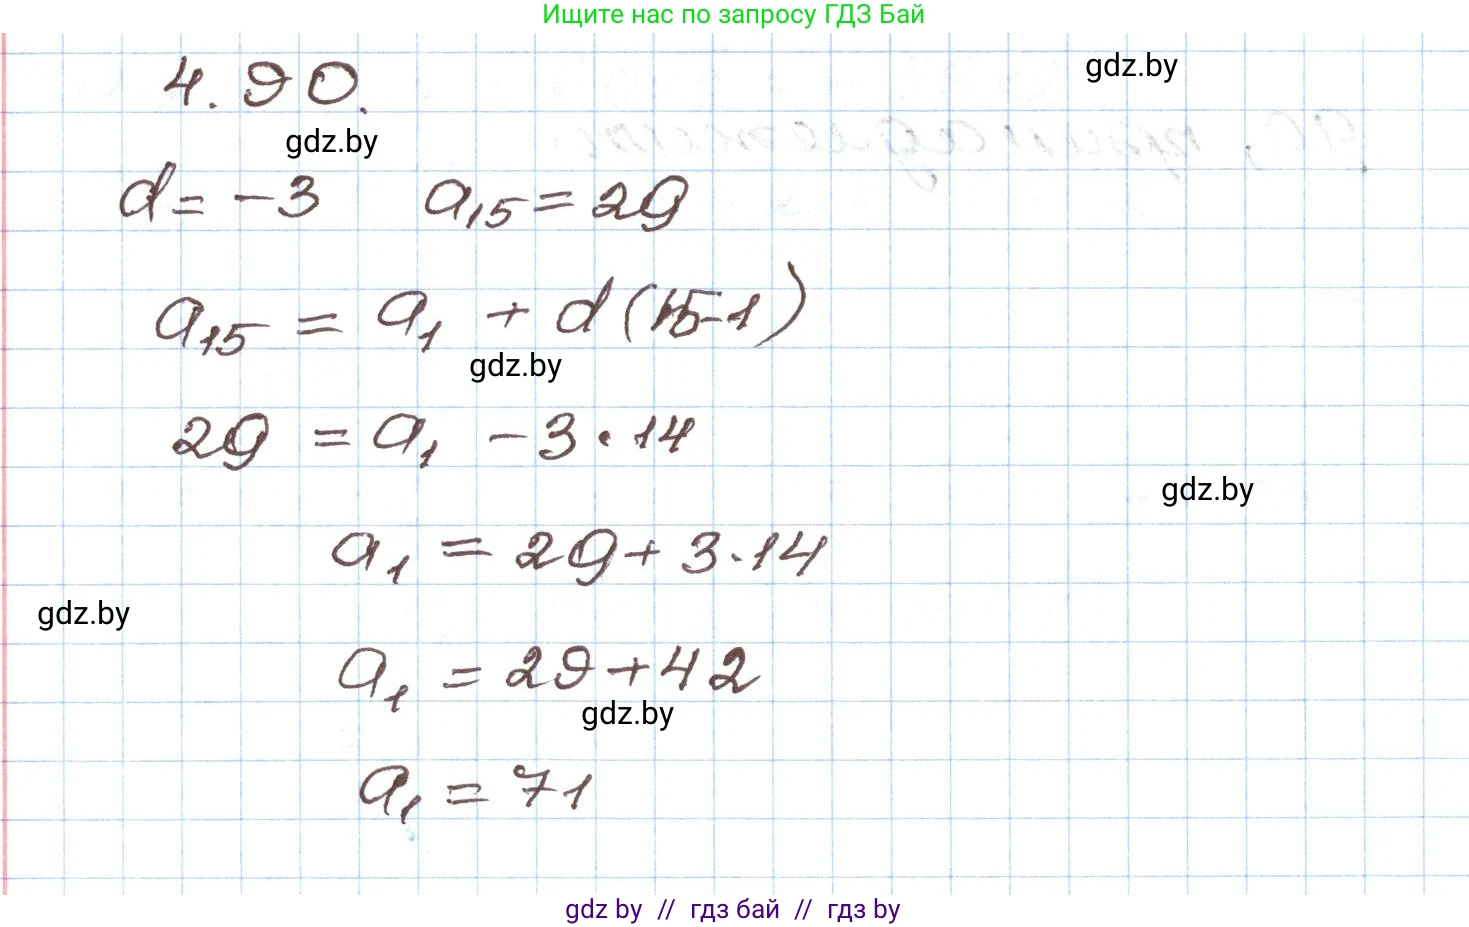 Ищите нас по запросу ГДЗ Бай
4.90.
gdz.by
gdz.by
d = -3 a₁₅ = 29
a₁₅ = a₁ + d (15-1)
gdz.by
29 = a₁ - 3 · 14
gdz.by
a₁ = 29 + 3 · 14
gdz.by
a₁ = 29 + 42
gdz.by
a₁ = 71
gdz by // гдз бай // гдз by